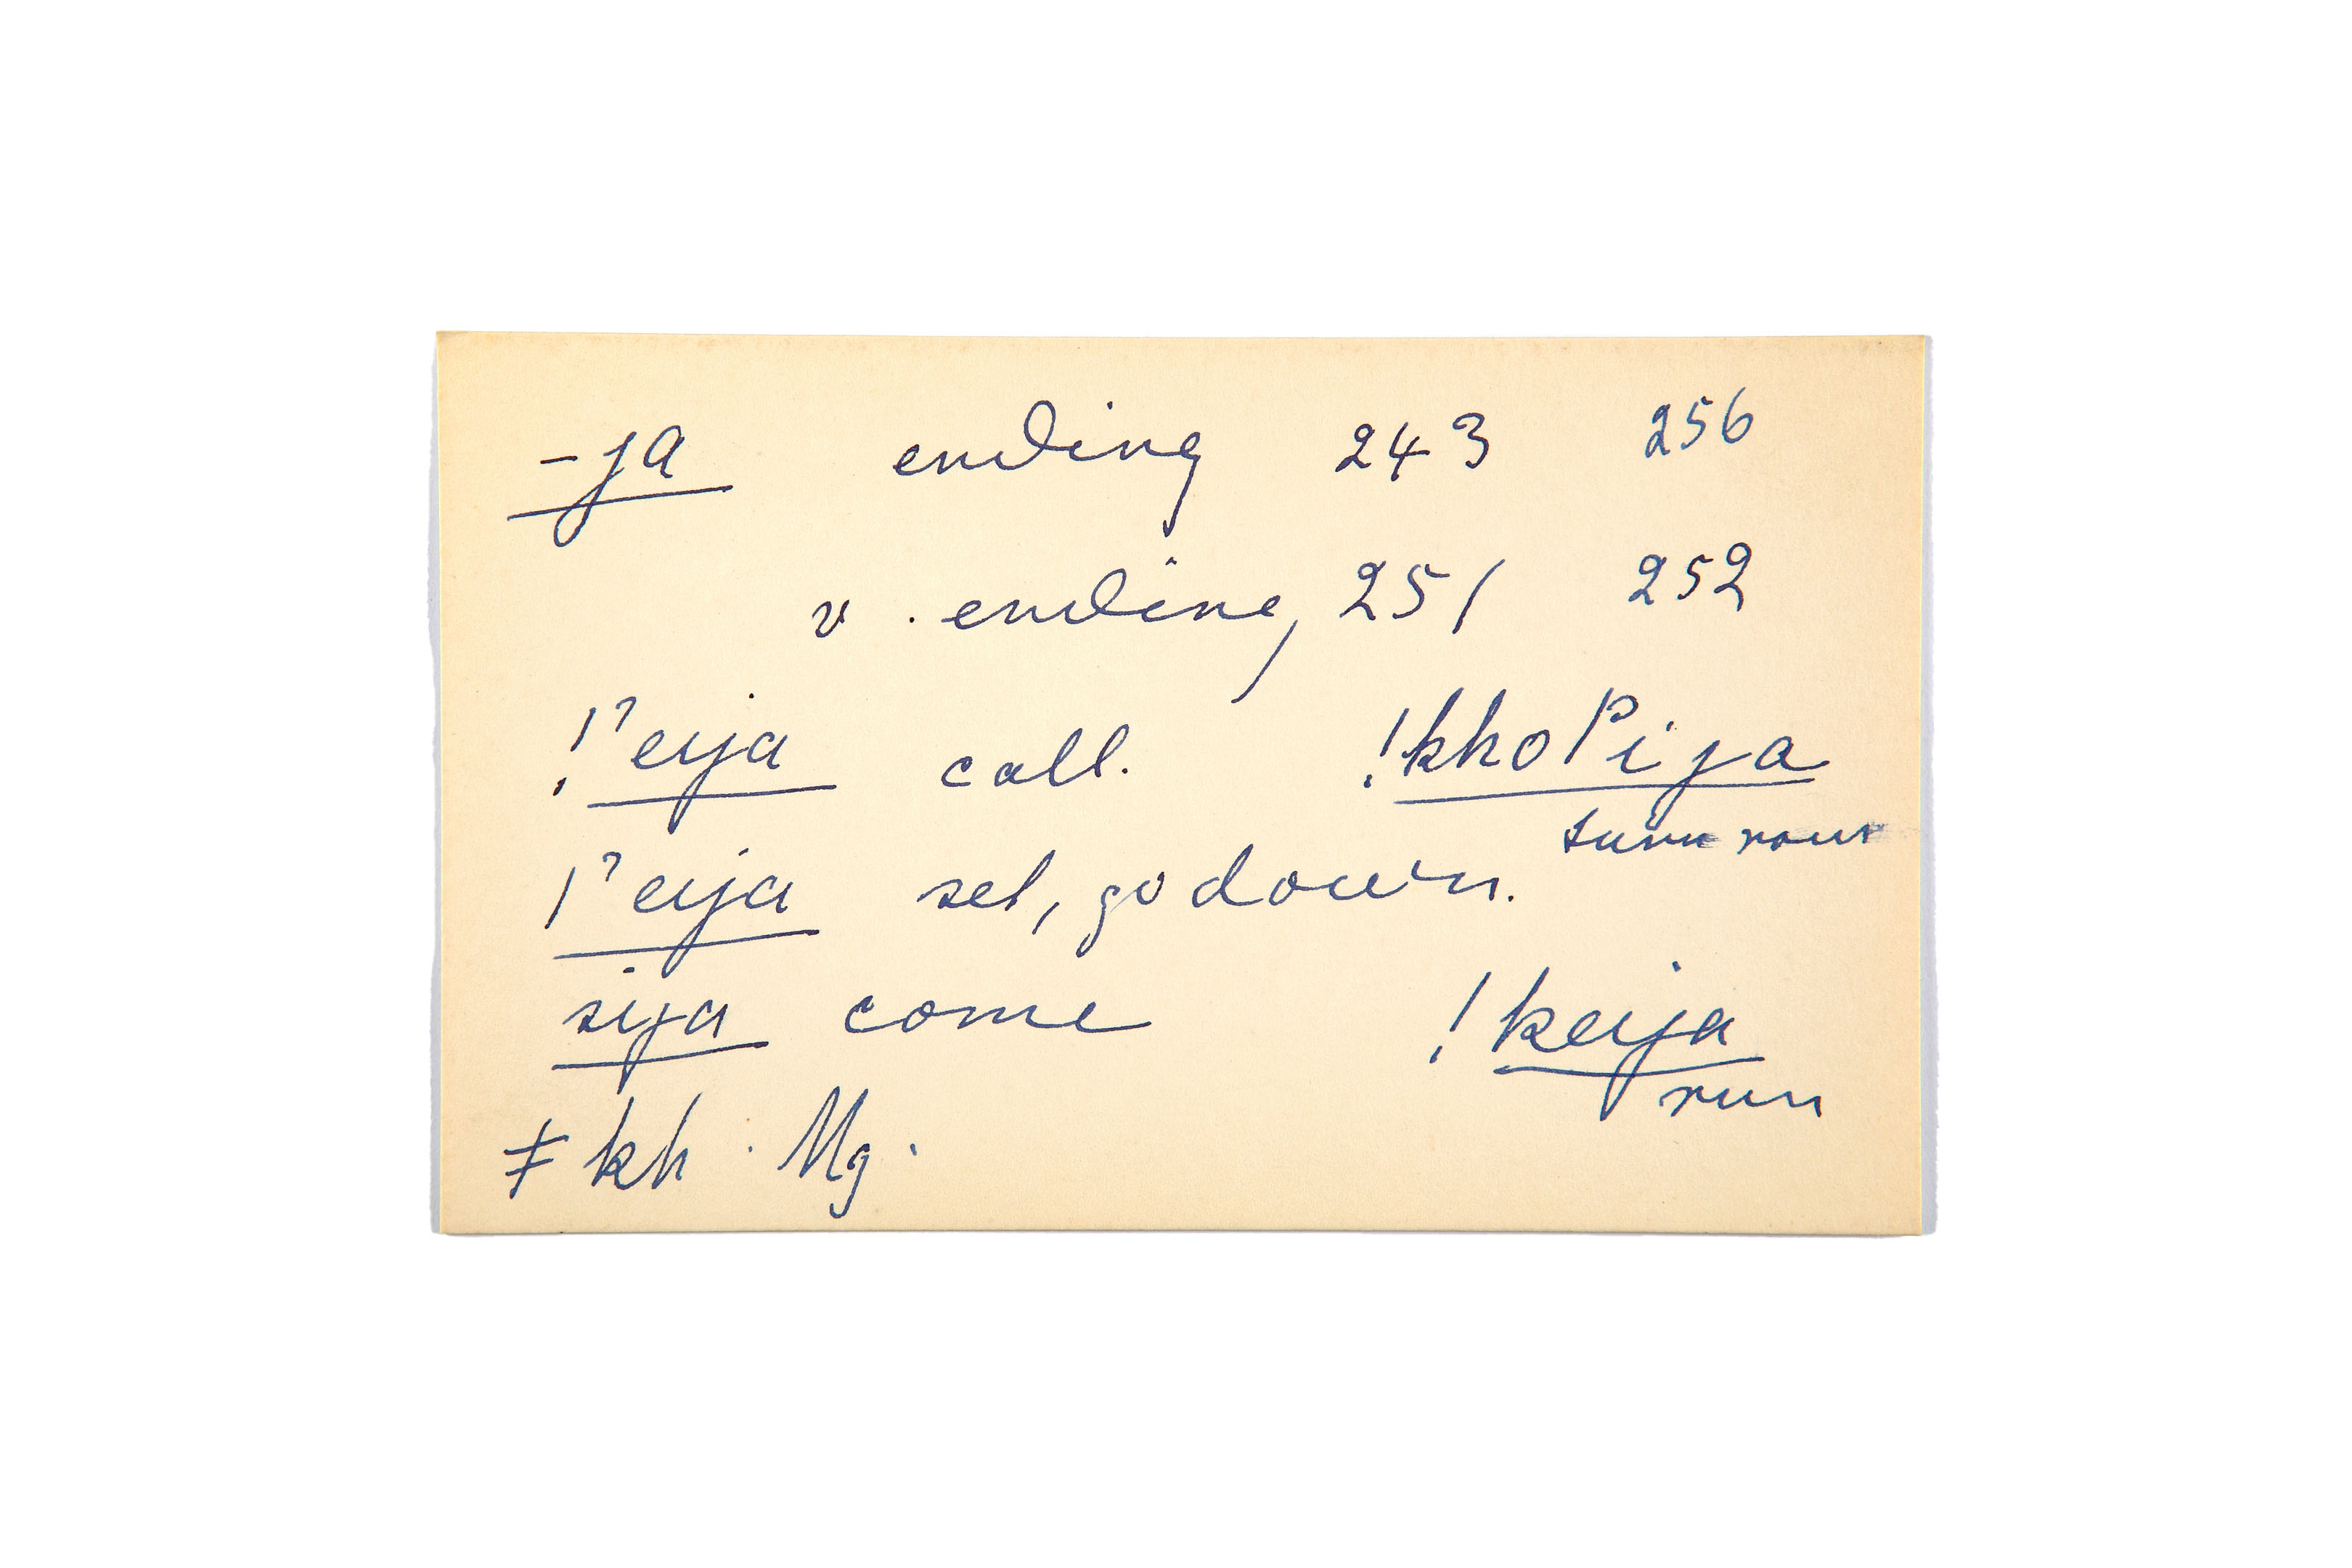 -ja ending 243 256
v. ending 251 252
!ˀeija call. !kho/ˀija
turn roun
/ˀeija set, go down.
sija come !keija
run
ǂkh. Mg.